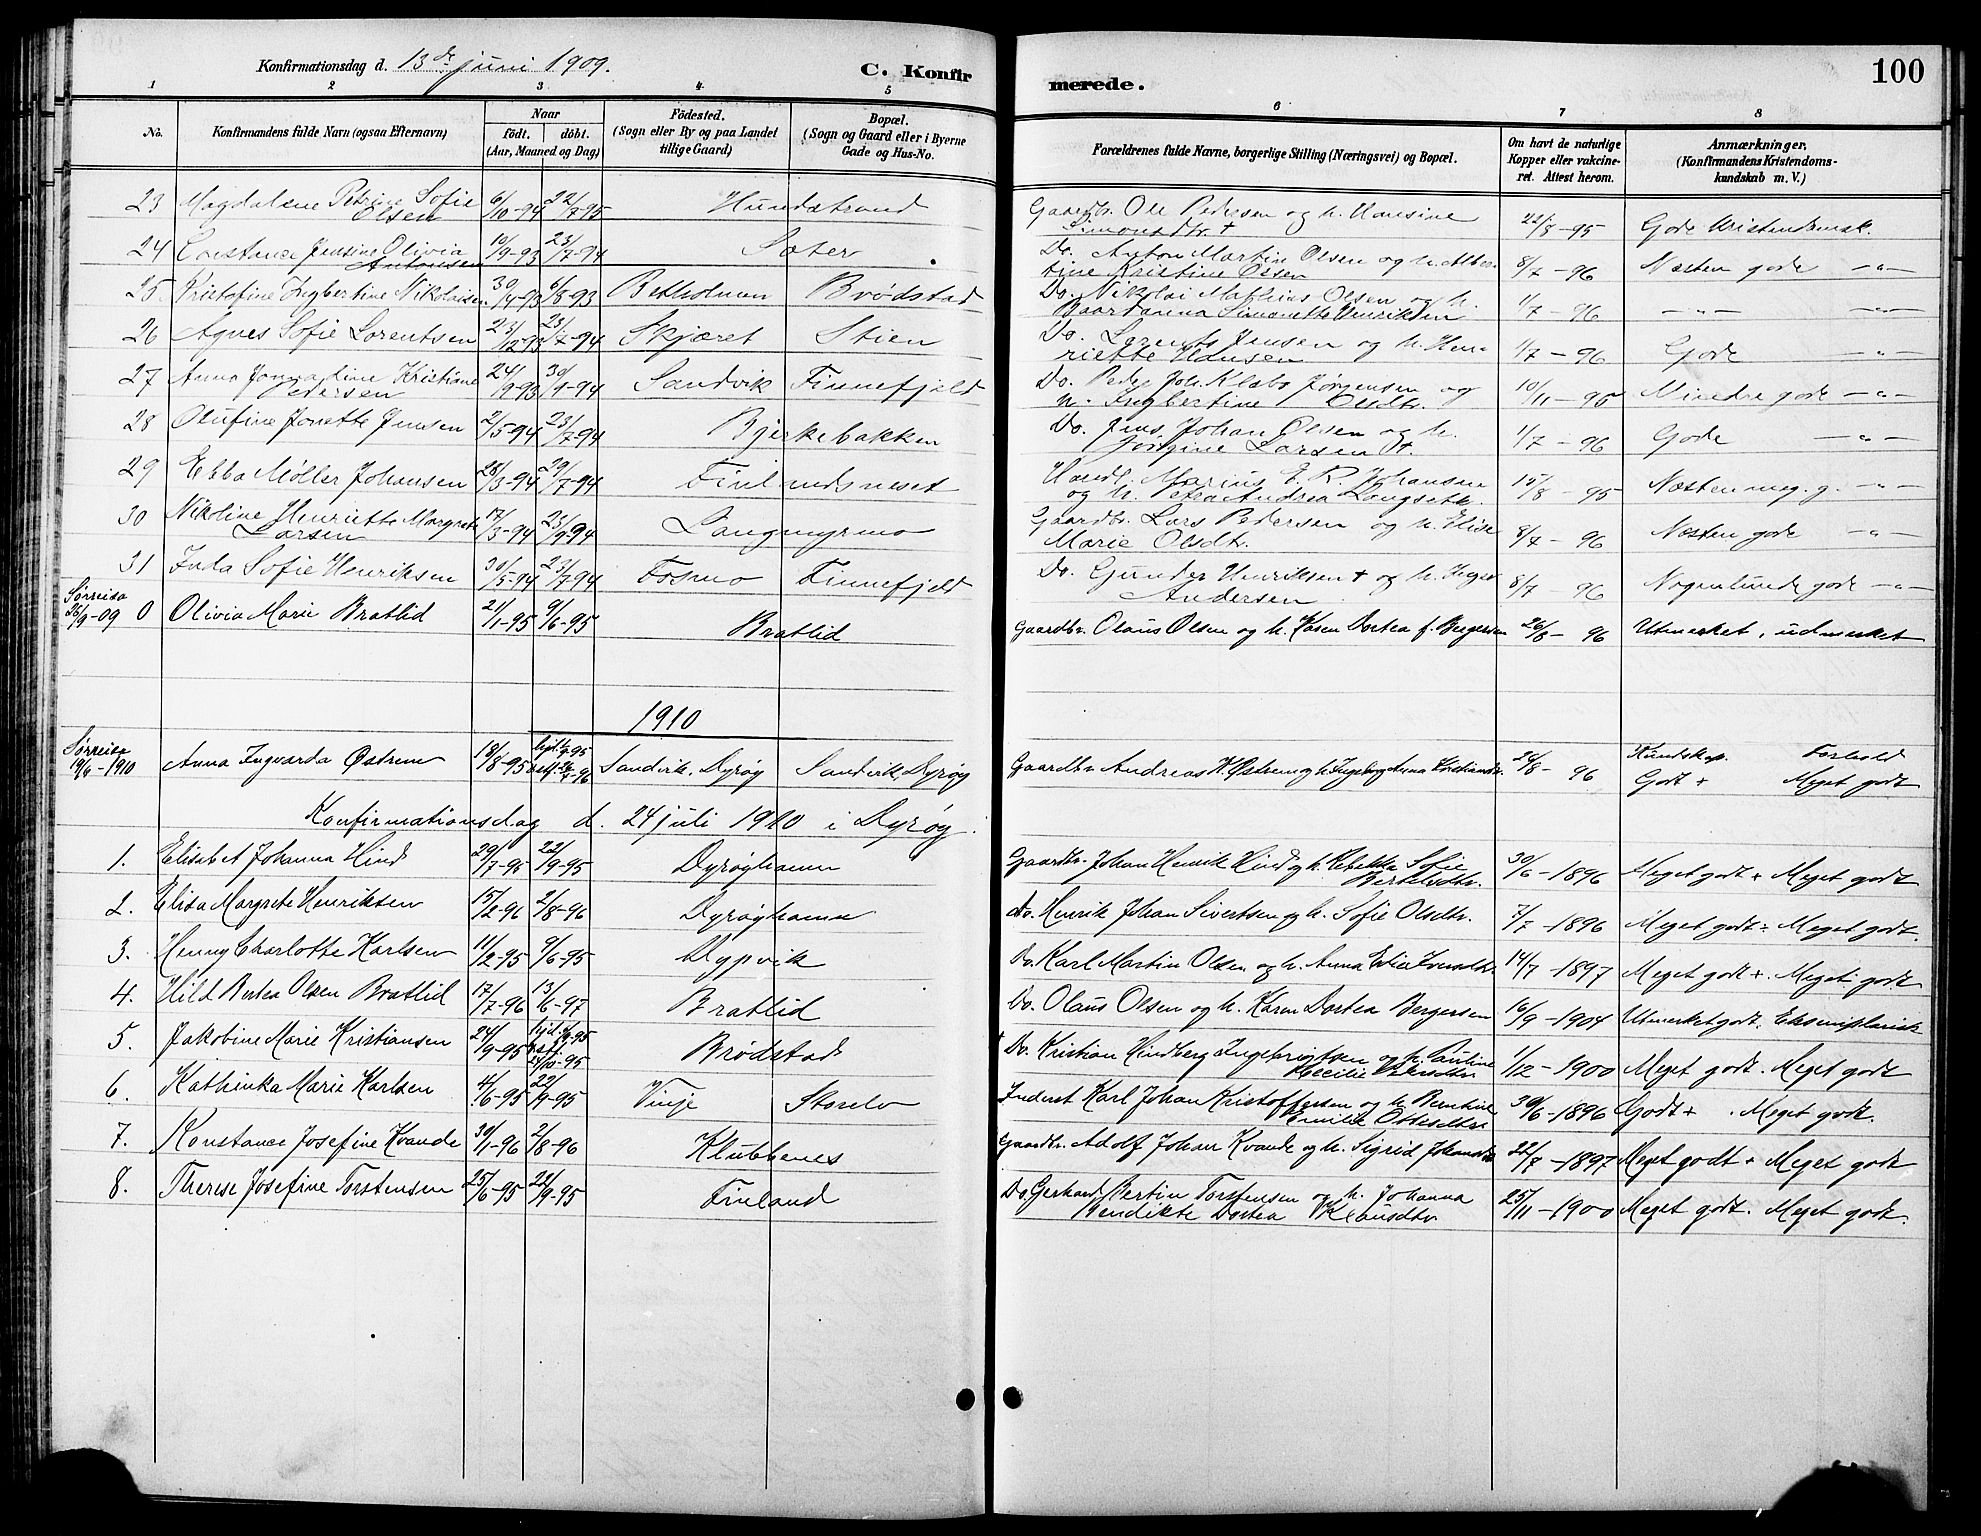 Konfirmationsdag d. 13de juni 1909.
C. Konfirmerede.
100
1 2 3 4 5 6 7 8
No.
Konfirmandens fulde Navn (ogsaa Efternavn)
Naar
födt. döbt.
(Aar, Maaned og Dag)
Födested.
(Sogn eller By og paa Landet
tillige Gaard)
Bopæl.
(Sogn og Gaard eller i Byerne
Gade og Hus-No.
Forældrenes fulde Navne, borgerlige Stilling (Næringsvei) og Bopæl.
Om havt de naturlige
Kopper eller vakcine-
ret. Attest herom.
Anmærkninger.
(Konfirmandens Kristendoms-
kundskab m. V.)
23 Magdalene Petrine Sofie Olsen 6/10-94 22/7-95 Hundstrand Gaardbr. Ole Pedersen og h. Hansine Simonsdtr. + 22/8-95 Gode Kristendomsk.
24 Constance Jensine Olivia Antonsen 10/9-93 23/7-94 Sæter Do. Anton Martin Olsen og h. Albertine Kristine Olsen 8/7-96 Næsten gode -"-
25 Kristofine Ingbertine Nikolaisen 30/4-93 6/8-93 Betholmen Brödstad Do. Nikolai Mathias Olsen og h. Simonette Henriksen 1/7-96 -"- -"-
26 Agnes Sofie Lorentsen 23/12-93 23/7-94 Skjæret Stien Do. Lorents Jensen og h. Henriette Hansen 1/7-96 Gode -"-
27 Anna Kristine Pedersen 24/9-93 30/9-94 Sandvik Finnefjeld Do. Peder Joh. Klæbo Jørgensen og h. Ingbertine Olsdtr. 10/11-95 Mindre gode -"-
28 Olufine Jonette Jensen 2/5-94 23/7-94 Bjerkebakken Do. Jens Johan Olsen og h. Jörgine Larsen 1/7-96 Gode -"-
29 Ebba Møller Johansen 28/3-94 29/7-94 Finlandsneset Handl. Marius E. R. Johansen og h. Petra Andrea Langseth. 15/8-95 Næsten meg. g. -"-
30 Nikoline Henriette Margrete Larsen 17/3-94 23/9-94 Langmyrmo Gaardbr. Lars Pedersen og h. Elise Marie Olsdtr. 8/7-96 Næsten gode -"-
31 Inda Sofie Henriksen 30/5-94 23/7-94 Fosmo Finnefjeld Do. Gunder Henriksen + og h. Inger Andersen 8/7-96 Nogenlunde gode -"-
Sørreisa
26/9-09 0 Olivia Marie Bratlid 21/1-95 9/6-95 Bratlid Gaardbr. Olaus Olsen og h. Karen Dortea f. Bergersen 26/8-96 Utmerket, udmerket
1910
Sørreisa
19/6-1910 Anna Ingvarda Østrem 18/8-95 Sandvik, Dyrøy Sandvik, Dyrøy Gaardbr. Andreas H. Østrem og h. Ingeborg Anna Kristiansdtr. 26/8-96 Kundskap. Godt + Forhold Meget godt
Konfirmationsdag d. 24 juli 1910 i Dyrøy.
1. Elisabet Johanna Hind 29/7-95 22/9-95 Dyrøyhamn Gaardbr. Johan Henrik Hind og h. Rebekka Sofie Bertelsdtr. 30/6-1896 Meget godt + Meget godt
2. Elisa Margrete Henriksen 15/2-96 2/8-96 Dyrøyhamn Do. Henrik Johan Sivertsen og h. Sofie Olsdtr. 7/7-1896 Meget godt. Meget godt.
3. Henny Charlotte Karlsen 11/2-95 9/6-95 Dypvik Do. Karl Martin Olsen og h. Anna 14/7-1897 Meget godt +. Meget godt.
4. Hild Bertea Olsen Bratlid 17/7-96 13/6-97 Bratlid Do. Olaus Olsen og h. Karen Dortea Bergersen 16/9-1904 Utmerket godt. Eksemplarisk
5. Jakobine Marie Kristiansen 24/9-95 Brødstad Do. Kristian Hindberg Ingebrigtsen og h. Pauline Cecilie 1/12-1900 Meget godt. Meget godt
6. Kathinka Marie Karlsen 4/6-95 22/9-95 Vinje Storelv Inderst Karl Johan Kristoffersen og h. Berntine Emilie Ottesdtr 30/6-1896 Godt + . Meget godt.
7. Konstance Josefine Kvande 30/1-96 2/8-96 Klubbenes Gaardbr. Adolf Johan Kvande og h. Sigrid Johansdtr 22/7-1897 Meget godt + Meget godt
8. Therese Josefine Torstensen 25/6-95 22/9-95 Finland Do. Gerhard Bertin Torstensen og h. Johanna Bendikte Dortea Klausdtr 25/11-1900 Meget godt. Meget godt.